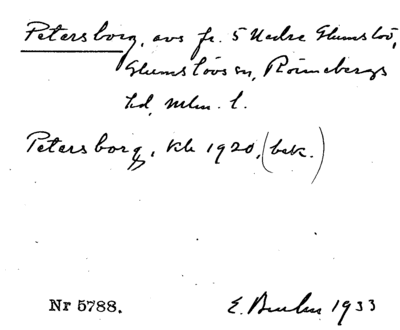 Petersborg, avs fr. 5 Nedre Glumslöv,
Glumslövs sn, Rönnebergs
hd, Mlm. l.
Petersborg, kk 1920, (bek.)
Nr 5788. E. 1933